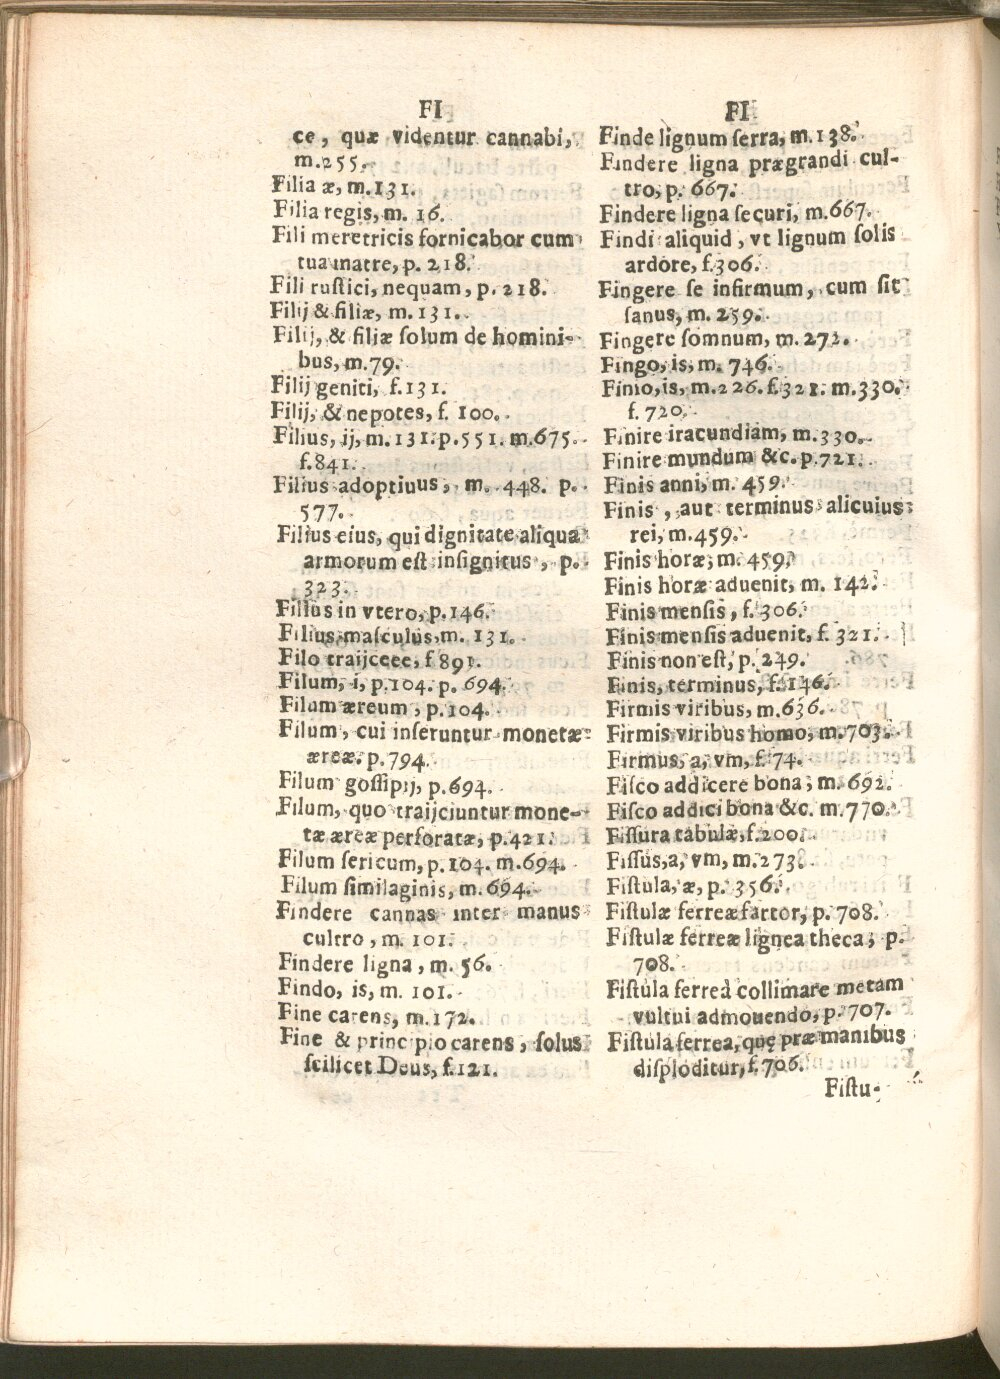 FI
ce, quæ videntur cannabi,
m.255.
Filia æ, m.131.
Filia regis, m. 16.
Fili meretricis fornicabor cum
tua matre, p. 218.
Fili rustici, nequam, p. 218.
Filij & filiæ, m.131.
Filij, & filiæ solum de homini-
bus, m.79.
Filij geniti, f.131.
Filij, & nepotes, f. 100.
Filius, ij, m.131.p.551. m.675.
f.841.
Filius adoptiuus, m. 448. p.
577.
Filius eius, qui dignitate aliqua
armorum est insignitus, p.
323.
Filius in vtero, p.146.
Filius masculus, m. 131.
Filo traijcere, f 891.
Filum, i, p.104. p. 694.
Filum æreum, p.104.
Filum, cui inseruntur monetæ
æreæ. p.794.
Filum gossipij, p.694.
Filum, quo traijciuntur mone-
tæ æreæ perforatæ, p.421.
Filum sericum, p.104. m.694.
Filum similaginis, m.694.
Findere cannas inter manus
cultro, m. 101.
Findere ligna, m. 56.
Findo, is, m. 101.
Fine carens, m.172.
Fine & principio carens, solus
scilicet Deus, f.121.
FI
Finde lignum serra, m.138.
Findere ligna prægrandi cul-
tro, p. 667.
Findere ligna securi, m.667.
Findi aliquid, vt lignum solis
ardore, f.306.
Fingere se infirmum, cum sit
sanus, m. 259.
Fingere somnum, m. 272.
Fingo, is, m. 746.
Finio, is, m.226. f.321. m.330.
f. 720.
Finire iracundiam, m.330.
Finire mundum &c. p.721.
Finis anni, m. 459.
Finis, aut terminus alicuius
rei, m.459.
Finis horæ, m.459.
Finis horæ aduenit, m. 142.
Finis mensis, f.306.
Finis mensis aduenit, f. 321.
Finis non est, p. 249.
Finis, terminus, f.146.
Firmis viribus, m.636.
Firmis viribus homo, m.703.
Firmus, a, vm, f.74.
Fisco addicere bona, m.692.
Fisco addici bona &c. m.770.
Fissura tabulæ, f.200.
Fissus, a, vm, m.273.
Fistula, æ, p. 356.
Fistulæ ferreæ fartor, p. 708.
Fistulæ ferreæ lignea theca, p.
708.
Fistula ferrea collimare metam
vultui admouendo, p. 707.
Fistula ferrea, quę præ manibus
disploditur, f.706.
Fistu-